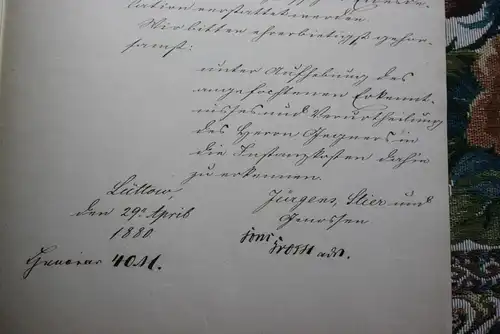 kation erstattet werden.
Wir bitten ehrerbietigst gehor-
samst:
unter Aufhebung des
angefochtenen Erkennt-
nisses und Verurtheilung
des Herrn Gegners in
die Instanzkosten dahin
zu erkennen.
Lüttow,
den 29n April
1880
Jürgens, Stier und
Genossen
Honorar 40 M.
adv.